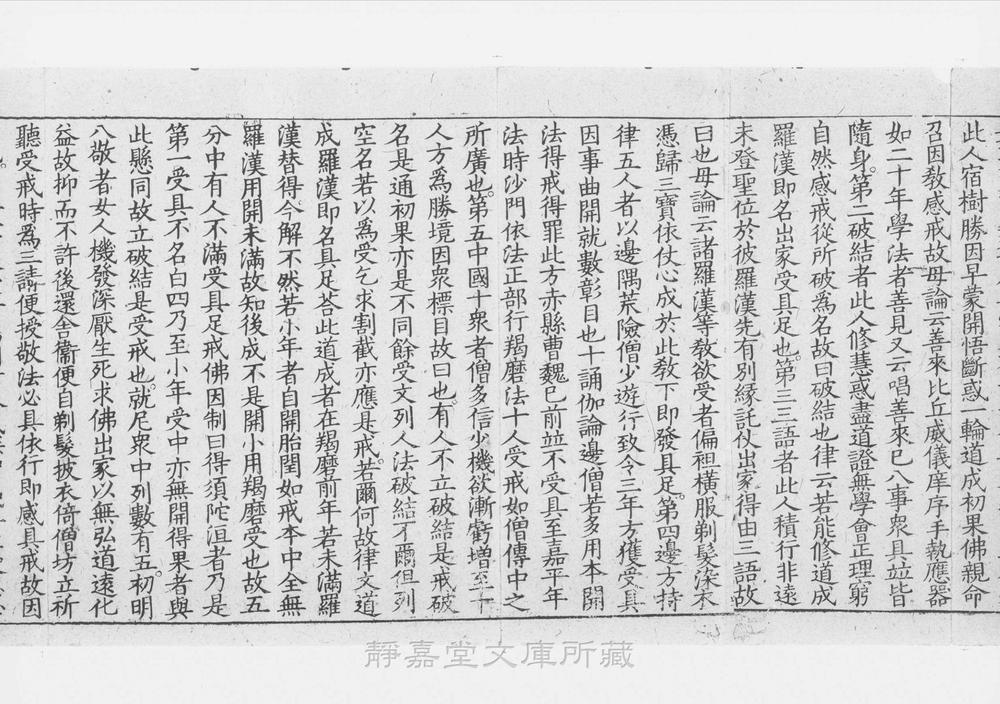 此人宿樹勝因早蒙開悟斷惑一輪道成初果佛親命
召因教感戒故母論云善來比丘威儀庠序手執應器
如二十年學法者善見又云唱善來已八事衆具並皆
隨身第二破結者此人修慧惑盡道證無學會正理窮
自然感戒從所破爲名故曰破結也律云若能修道成
羅漢即名出家受具足也第三三語者此人積行非遠
未登聖位於彼羅漢先有別緣託仗出家得由三語故
曰也母論云諸羅漢等教欲受者偏袒橫服剃髮深木
憑歸三寶依仗心成於此教下即發具足第四邊方持
律五人者以邊隅荒險僧少遊行致令三年方獲受具
因事曲開就數彰目也十誦伽論邊僧若多用本開
法得戒得罪此方亦縣曹魏已前並不受具至嘉平年
法時沙門依法正部行羯磨法十人受戒如僧傳中之
所廣也第五中國十衆者僧多信少機欲漸虧增至十
人方爲勝境因衆標目故曰也有人不立破結是戒破
名是通初果亦是不同餘受文列人法破結不爾但列
空名若以爲受乞求割截亦應是戒若爾何故律文道
成羅漢即名具足荅此道成者在羯磨前年若未滿羅
漢替得今解不然若小年者自開胎閏如戒本中全無
羅漢用開未滿故知後成不是開小用羯磨受也故五
分中有人不滿受具足戒佛因制曰得須陀洹者乃是
第一受具不名白四乃至小年受中亦無開得果者與
此懸同故立破結是受戒也就尼衆中列數有五初明
八敬者女人機發深厭生死求佛出家以無弘道遠化
益故抑而不許後還舍衛便自剃髮披衣倚僧坊立祈
聽受戒時爲三請便授敬法必具依行即感具戒故因
靜嘉堂文庫所藏